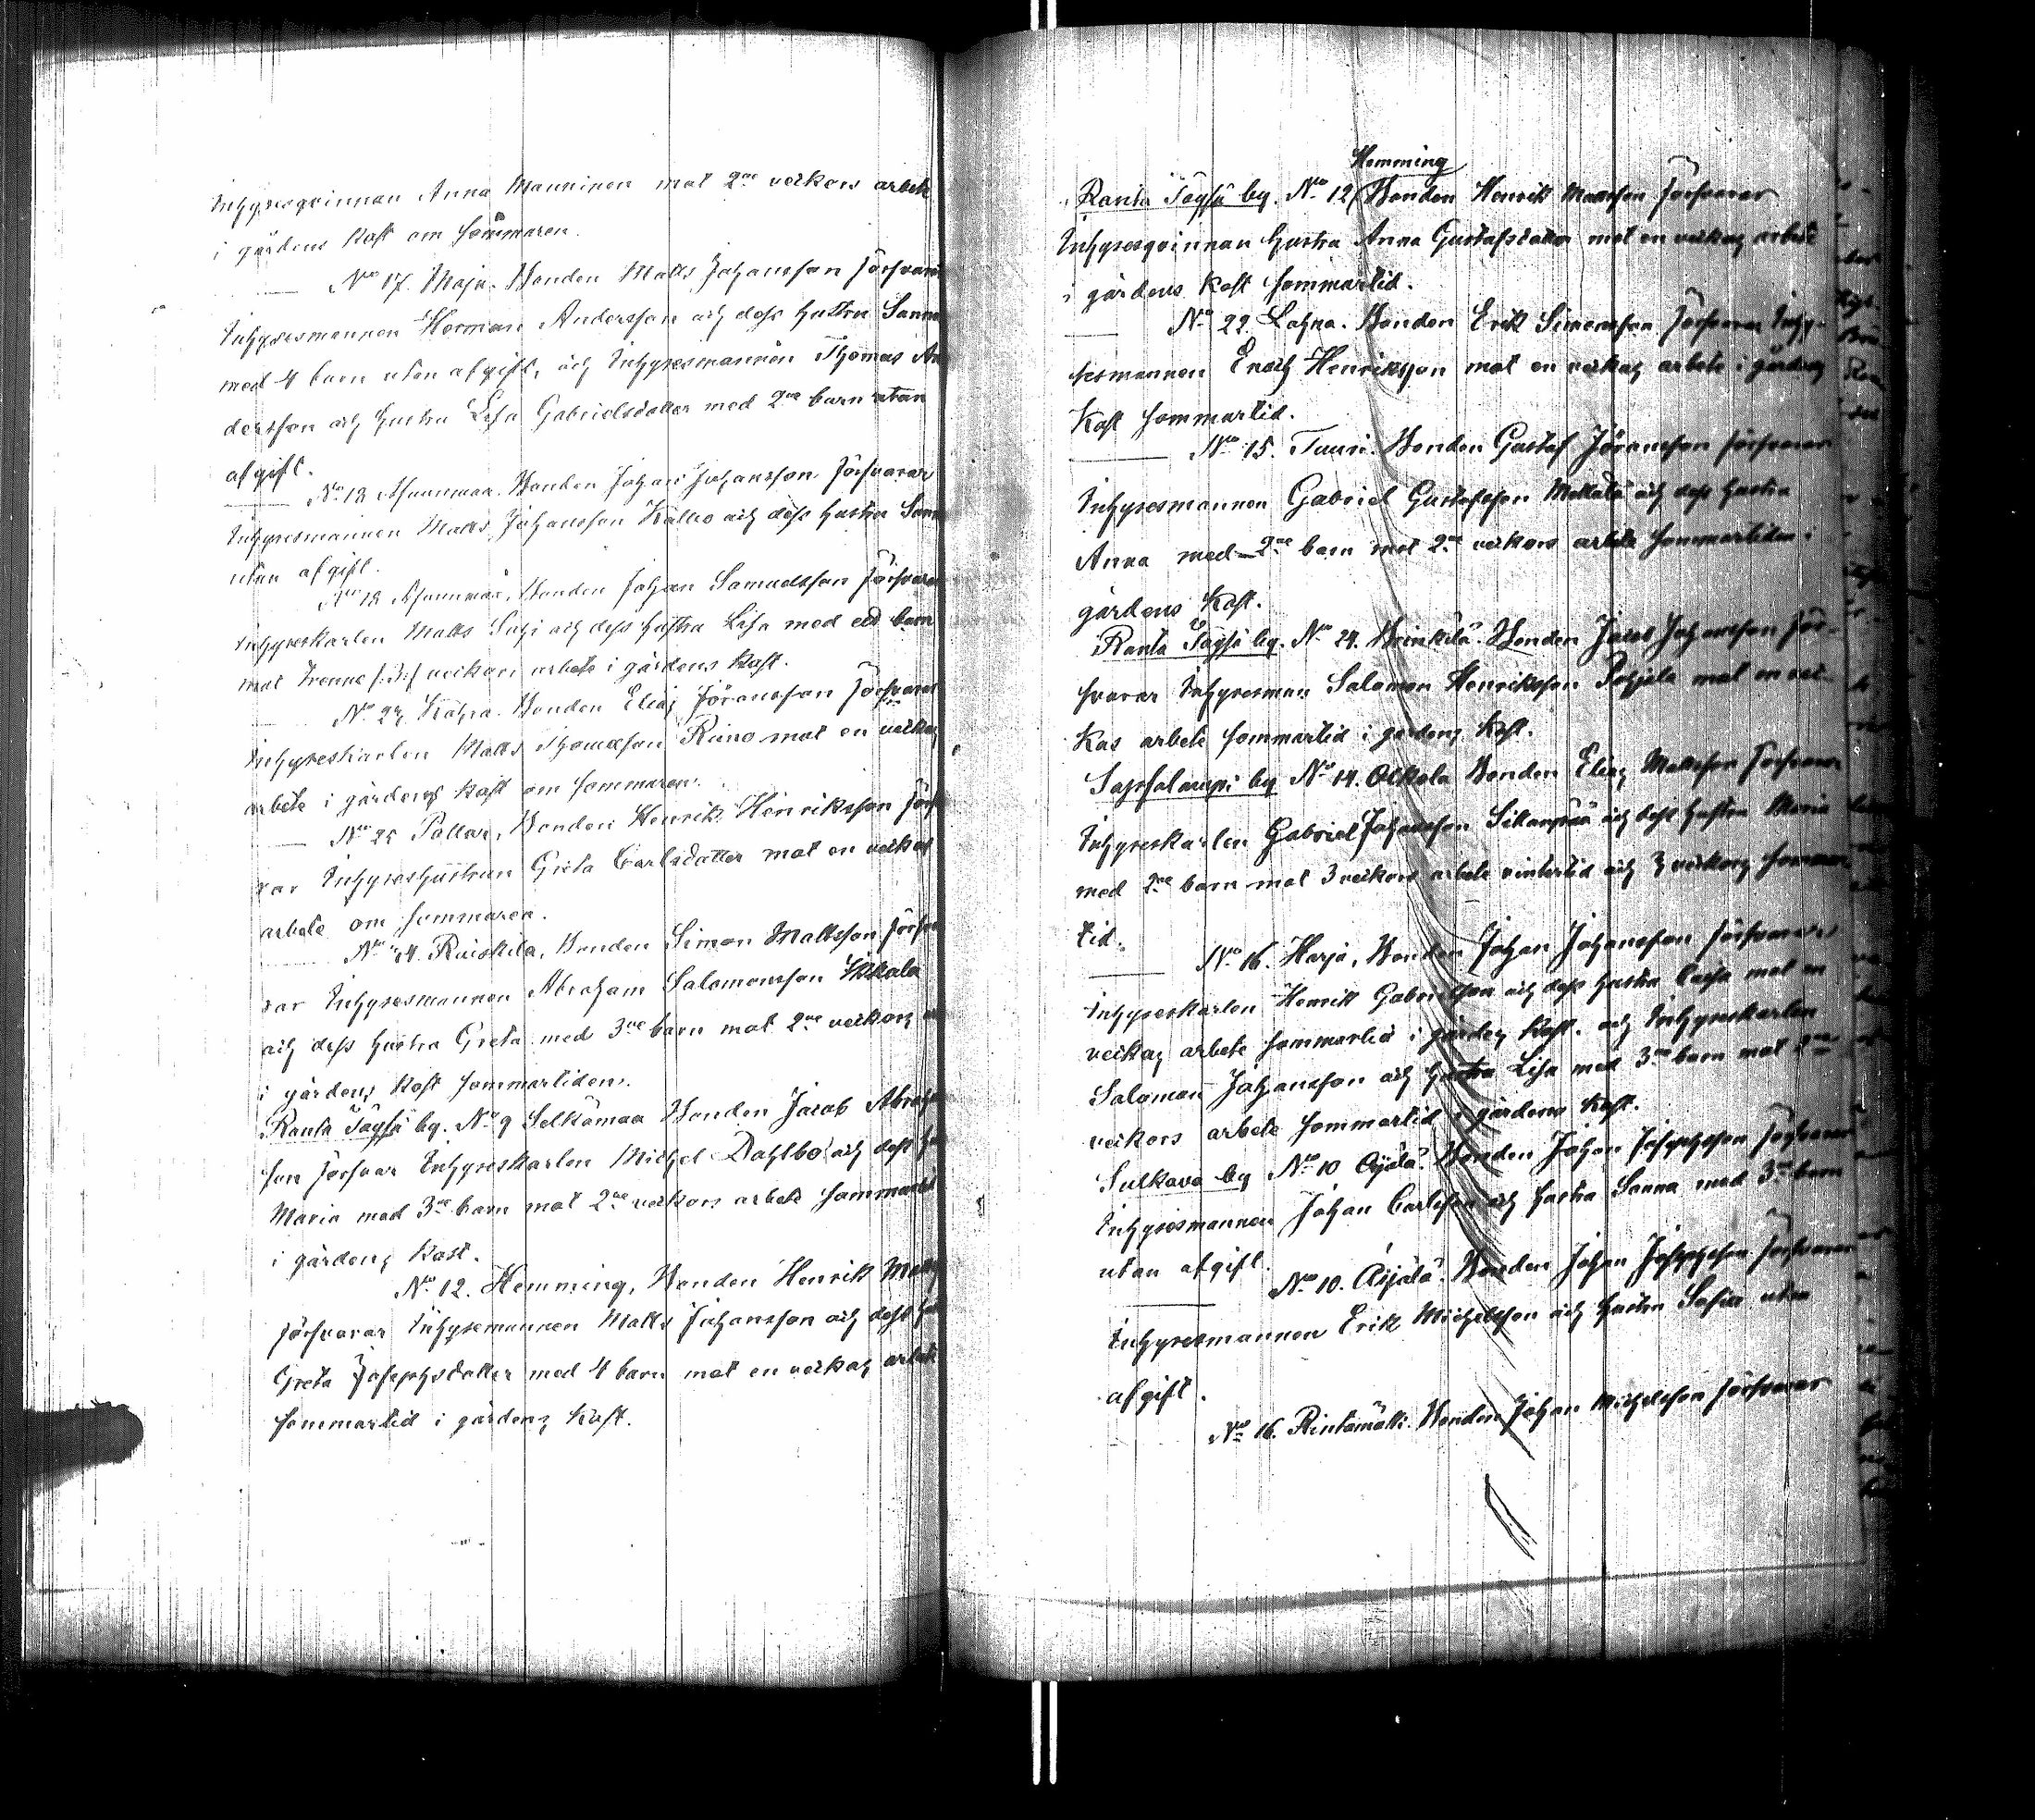 Inhysesqvinnan Anna Manninen mot 2ne veckors arbete
i gårdens kost om sommaren.
No 17. Maja. Bonden Matts Johansson försvarar
Inhysesmannen Herman Andersson och dess hustru Sanna
med 4 barn utan afgift, och Inhysesmannen Thomas An
dersson och hustru Lisa Gabrielsdotter med 2ne barn utan
afgift.
No 18 Bonden Johan Johansson försvarar
Inhysesmannen Matts Johansson Kalho och dess hustru
utan afgift.
No 18 Bonden Johan Samuelsson försvarar
Inhyseskarlen Matts och dess hustru Lisa med ett barn
mot trenne /:3:/ veckors arbete i gårdens kost.
No Bonden Elias Jöransson försvarar
Inhyseskarlen Matts Thomasson mot en veckas
arbete i gårdens kost om sommaren.
No 25 Pallar, Bonden Henrik Henriksson förs
var Inhyseshustrun Greta Carlsdotter mot en veckas
arbete om sommaren.
No Ruiskila, Bonden Simon Mattsson försva
rar Inhysesmannen Abraham Salomonsson
och dess hustru Greta med 3ne barn mot 2ne veckors
i gårdens kost sommartiden.
Ranta Töysä by. No 9 Selkämaa Bonden Jacob Abraha
son försvar Inhyseskarlen Michel Dahlbo och dess
Maria med 3ne barn mot 2ne veckors arbete sommartid
i gårdens kost.
No 12. Hemming, Bonden Henrik Matts
försvarar Inhysemannen Matts Johansson och dess
Greta Josephsdotter med 4 barn mot en veckas arbete
sommartid i gårdens kost.
Hemming
Ranta Töysä by. No 12/ Bonden Henrik Mattsson försvarar
Inhysesqvinnan hustru Anna Gustafsdotter mot en veckas arbete
i gårdens kost sommartid.
No 22. Lahna. Bonden Erik Simonsson försvarar Inhy-
sesmannen Enoch Henriksson mot en veckas arbete i gårdens
kost sommartid.
No 15. Tuuri. Bonden Gustaf Jöransson försvarar
Inhysesmannen Gabriel Gustafsson och dess hustru
Anna med 2ne barn mot 2ne veckors arbete sommartiden i
gårdens kost.
Ranta Töysä by. No 24. Bonden Jacob Johansson för-
svarar Inhysesman Salomon Henriksson Pohjola mot en vec-
kas arbete sommartid i gårdens kost.
by No 14. Ollkola Bonden Elias Mattsson försvarar
Inhyseskarlen Gabriel Johansson och dess hustru Maria
med 2ne barn mot 3 veckors arbete vintertid och 3 veckors sommar
tid.
No 16. Harju, Bonden Johan Johansson försvarar
Inhyseskarlen Henrik Gabrielsson och dess hustru Caisa mot en
veckas arbete sommartid i gårdens kost. och Inhyseskarlen
Salomon Johansson och hustru Lisa med 3ne barn mot 2ne
veckors arbete sommartid i gårdens kost.
Sulkava by No 10 Äijälä. Bonden Johan Josephsson försvarar
Inhysesmannen Johan Carlsson och hustru Sanna med 3ne barn
utan afgift.
No 10. Äijälä. Bonden Johan Josephsson försvarar
Inhysesmannen Erik Michelsson och hustru Sofia utan
afgift.
No 16. Rintamäki. Bonden Johan Michelsson försvarar